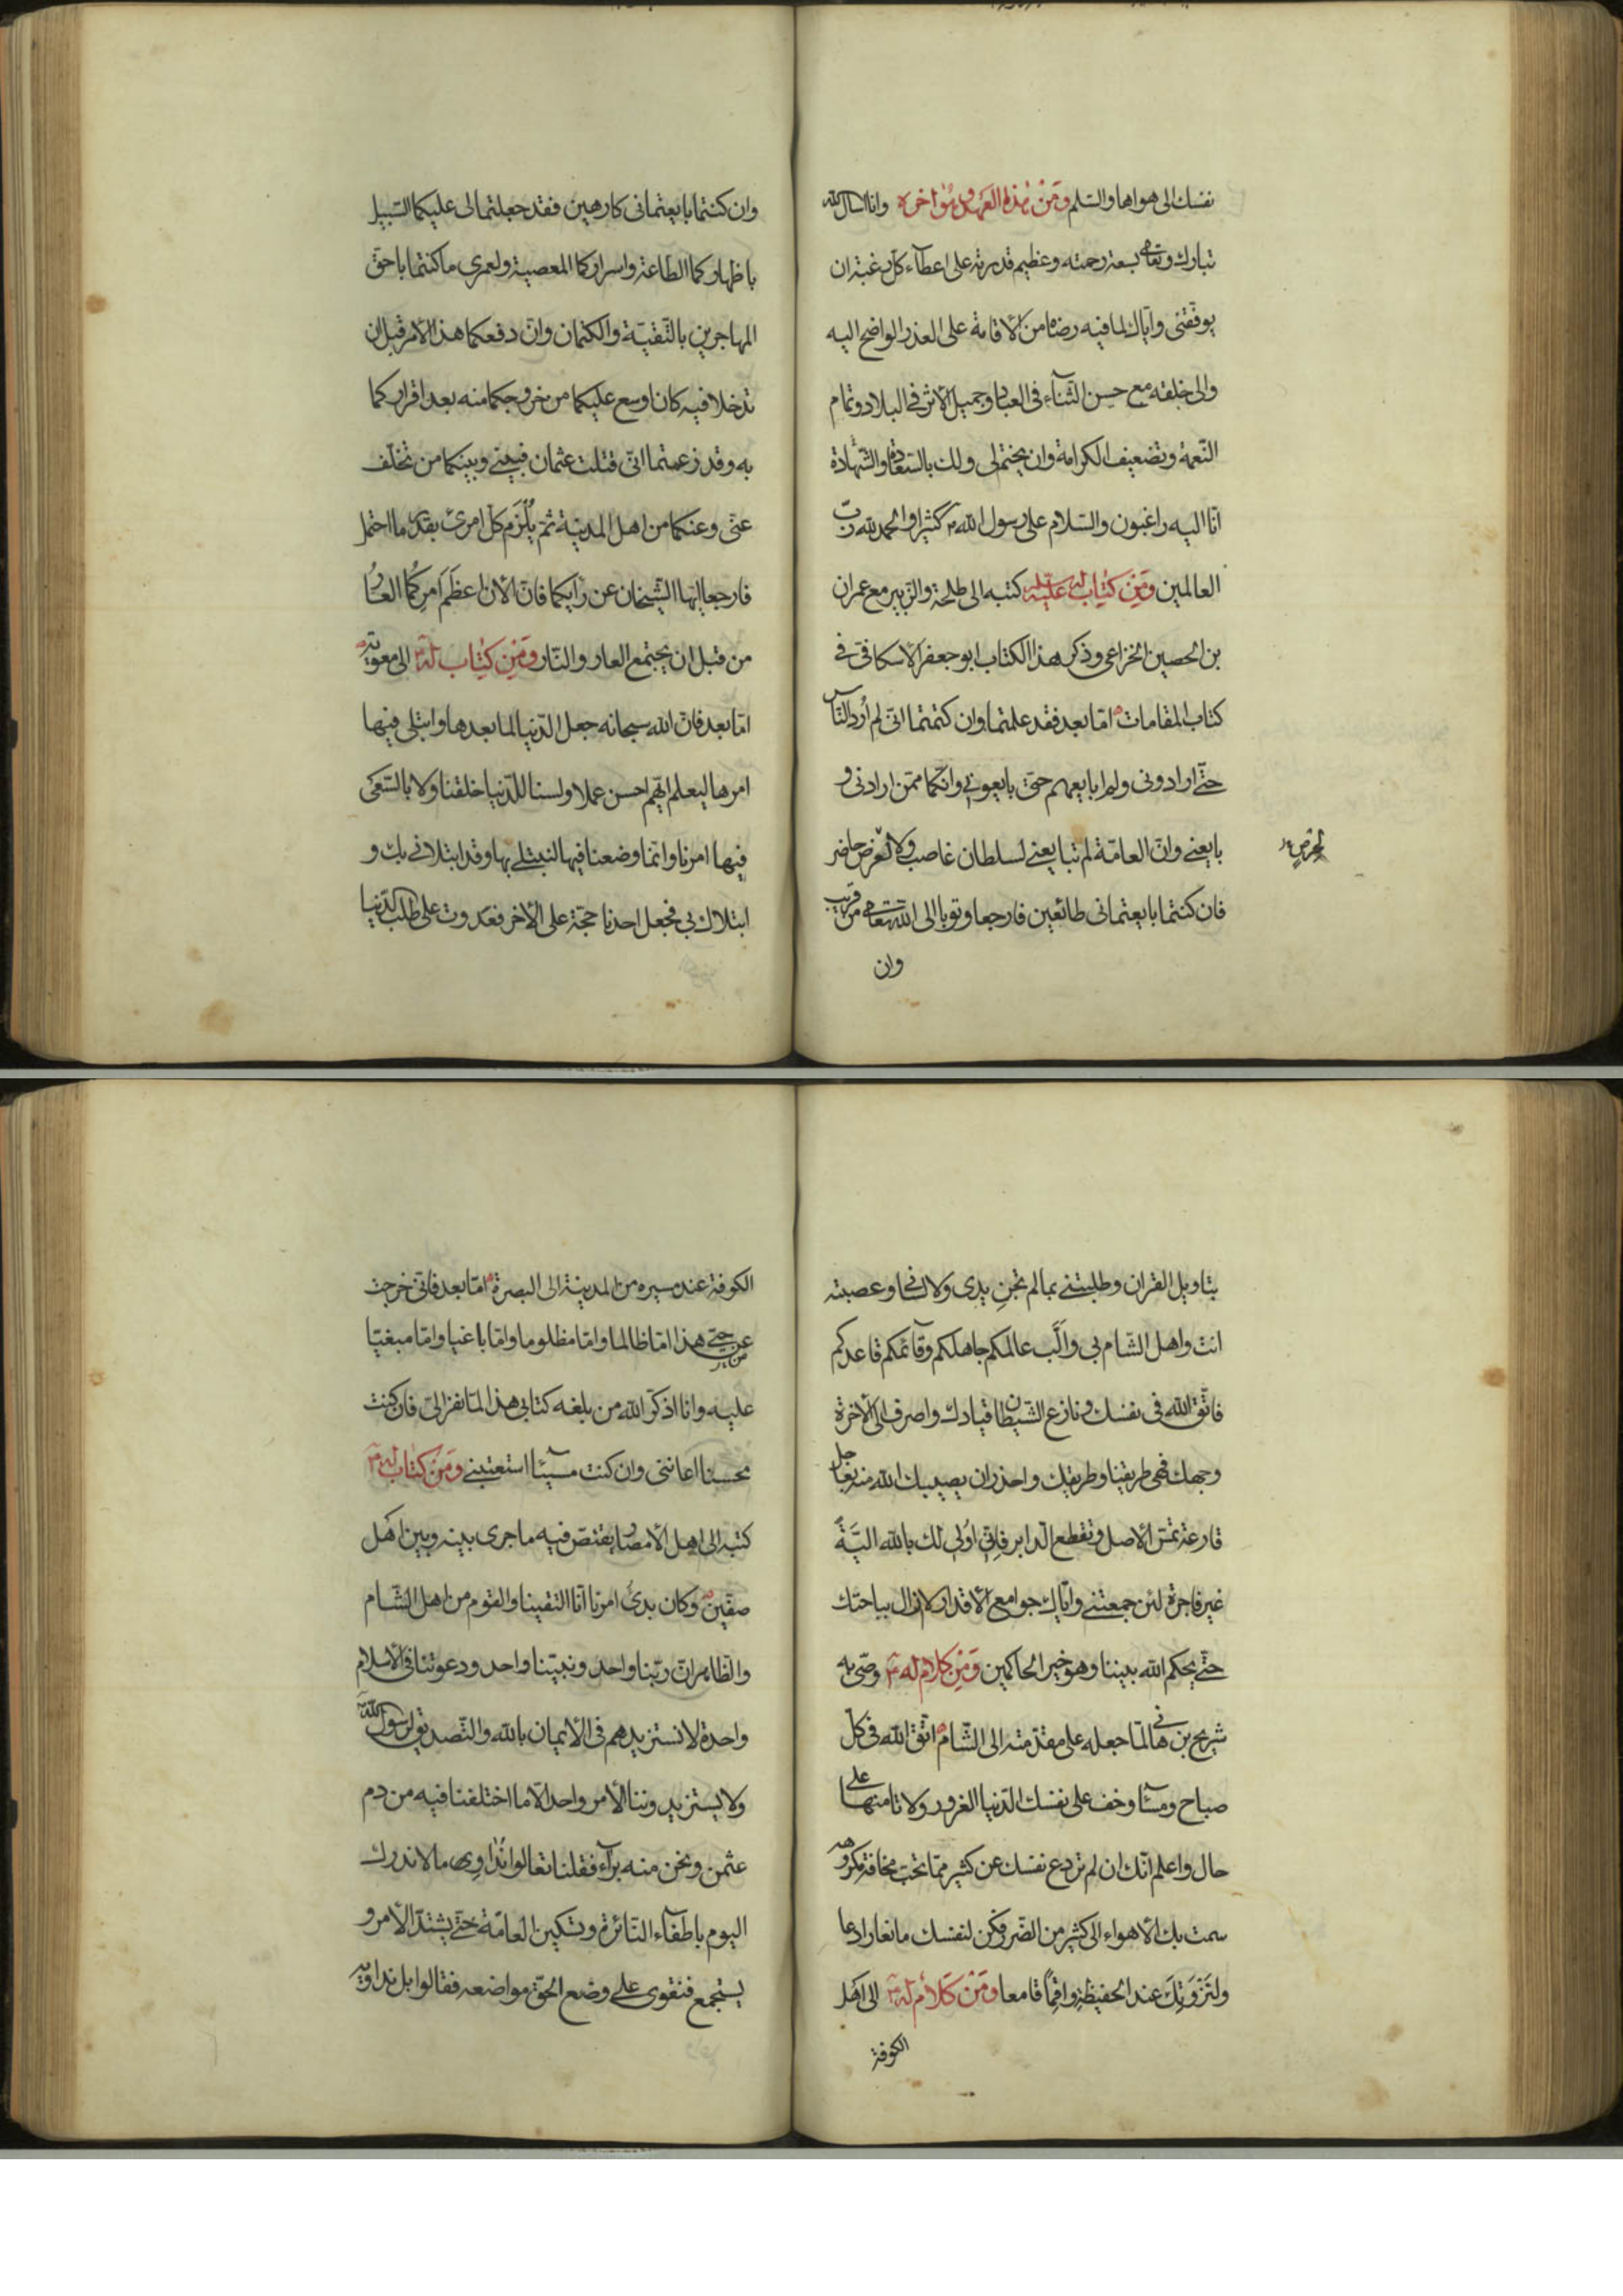 نفسك الى هواها والسلم ومن هذه العهد وهو اخره وانا اسال الله
تبارك وتعالى بسعة رحمته وعظيم قدرته على اعطاء كل رغبة ان
يوفقنى واياك لما فيه رضاه من الأقامة على العذر الواضح اليه
والى خلقه مع حسن الثناء فى العباد وجميل الأثر فى البلاد وتمام
النعمة وتضعيف الكرامة وان يختم لى ولك بالسعادة والشهادة
انا اليه راغبون والسلام على رسول الله كثيرا والحمد لله رب
العالمين ومن كتاب له عليه كتبه الى طلحة والزبير مع عمران
بن الحصين الخزاعى وذكر هذا الكتاب ابو جعفر الاسكافى فى
كتاب المقامات اما بعد فقد علمتما وان كتمتما انى لم أرد الناس
حتى ارادونى ولم ابايعهم حتى بايعونى وانكما ممن ارادنى و
بايعنى وان العامة لم تبايعنى لسلطان غاصب ولا لعرض حاضر
لحرص
فان كنتما بايعتمانى طائعين فارجعا وتوبا الى الله تعالى من قريب
وان
وان كنتما بايعتمانى كارهين فقد جعلتما لى عليكما السبيل
باظهاركما الطاعة واسراركما المعصية ولعمرى ما كنتما باحق
المهاجرين بالتقية والكتمان وان دفعكما هذا الأمر قبل ان
تدخلا فيه كان اوسع عليكما من خروجكما منه بعد اقراركما
به وقد زعمتما انى قتلت عثمان فبينى وبينكما من تخلف
عنى وعنكما من اهل المدينة ثم يُلْزَم كل امرئ بقدر ما احتمل
فارجعا ايها الشيخان عن رايكما فان الأن اعظَمَ امرِكُما العارُ
من قبل ان يجتمع العار والنار ومن كتاب له الى معوية
اما بعد فان الله سبحانه جعل الدنيا لما بعدها وابتلى فيها
امرها ليعلم ايهم احسن عملا ولسنا للدنيا خلقنا ولا بالسعى
فيها امرنا وانما وضعنا فيها لنبتلى بها وقد ابتلانى بك و
ابتلاك بى فجعل احدنا حجة على الأخر فعدوت على طلب الدنيا
بتاويل القران وطلبتنى بما لم تجن يدى ولا لسانى وعصبته
انت واهل الشام بى وألَّب عالمكم جاهلكم وقائمكم قاعدكم
فاتق الله فى نفسك ونازع الشيطان قيادك واصرف الى الأخرة
وجهك فهى طريقنا وطريقك واحذر ان يصيبك الله منه بعاجل
قارعة تمس الأصل وتقطع الدابر فانى اولى لك بالله اليَّةً
غير فاجرة لئن جمعتنى واياك جوامع الأقدار لا زال بباحتك
حتى يحكم الله بيننا وهو خير الحاكمين ومن كلام له وصى به
شريح بن هانى لما جعله على مقدمته الى الشام اتق الله فى كل
صباح ومساء وخف على نفسك الدنيا الغرور ولا تامنها على
حال واعلم انك ان لم تردع نفسك عن كثير مما تحب مخافة مكروهه
سمت بك الأهواء الى كثير من الضر فكن لنفسك مانعا رادعا
ولنَزْوَتِكَ عند الحفيظة واقِماً قامعا ومن كلام له الى اهل
الكوفة
الكوفة عند مسيره من المدينة الى البصرة اما بعد فانى خرجت
عن حيى هذا اما ظالما واما مظلوما واما باغيا واما مبغيا
عليه وانا اذكر الله من بلغه كتابى هذا لما نفر الى فان كنت
محسنا اعاننى وان كنت مسيئا استعتبنى ومن كتاب له
كتبه الى اهل الأمصار يقتص فيه ما جرى بينه وبين اهل
صفين وكان بدئ امرنا انا التقينا والقوم من اهل الشام
والظاهر ان ربنا واحد ونبينا واحد ودعوتنا فى الأسلام
واحدة لا نستزيدهم فى الأيمان بالله والتصديق لرسول الله
ولا يستزيدوننا الأمر واحد الا ما اختلفنا فيه من دم
عثمن ونحن منه برآء فقلنا تعالوا نُداوى ما لا ندرك
اليوم باطفاء النائرة وتسكين العامة حتى يشتد الأمر و
يستجمع فنقوى على وضع الحق مواضعه فقالوا بل نداويه